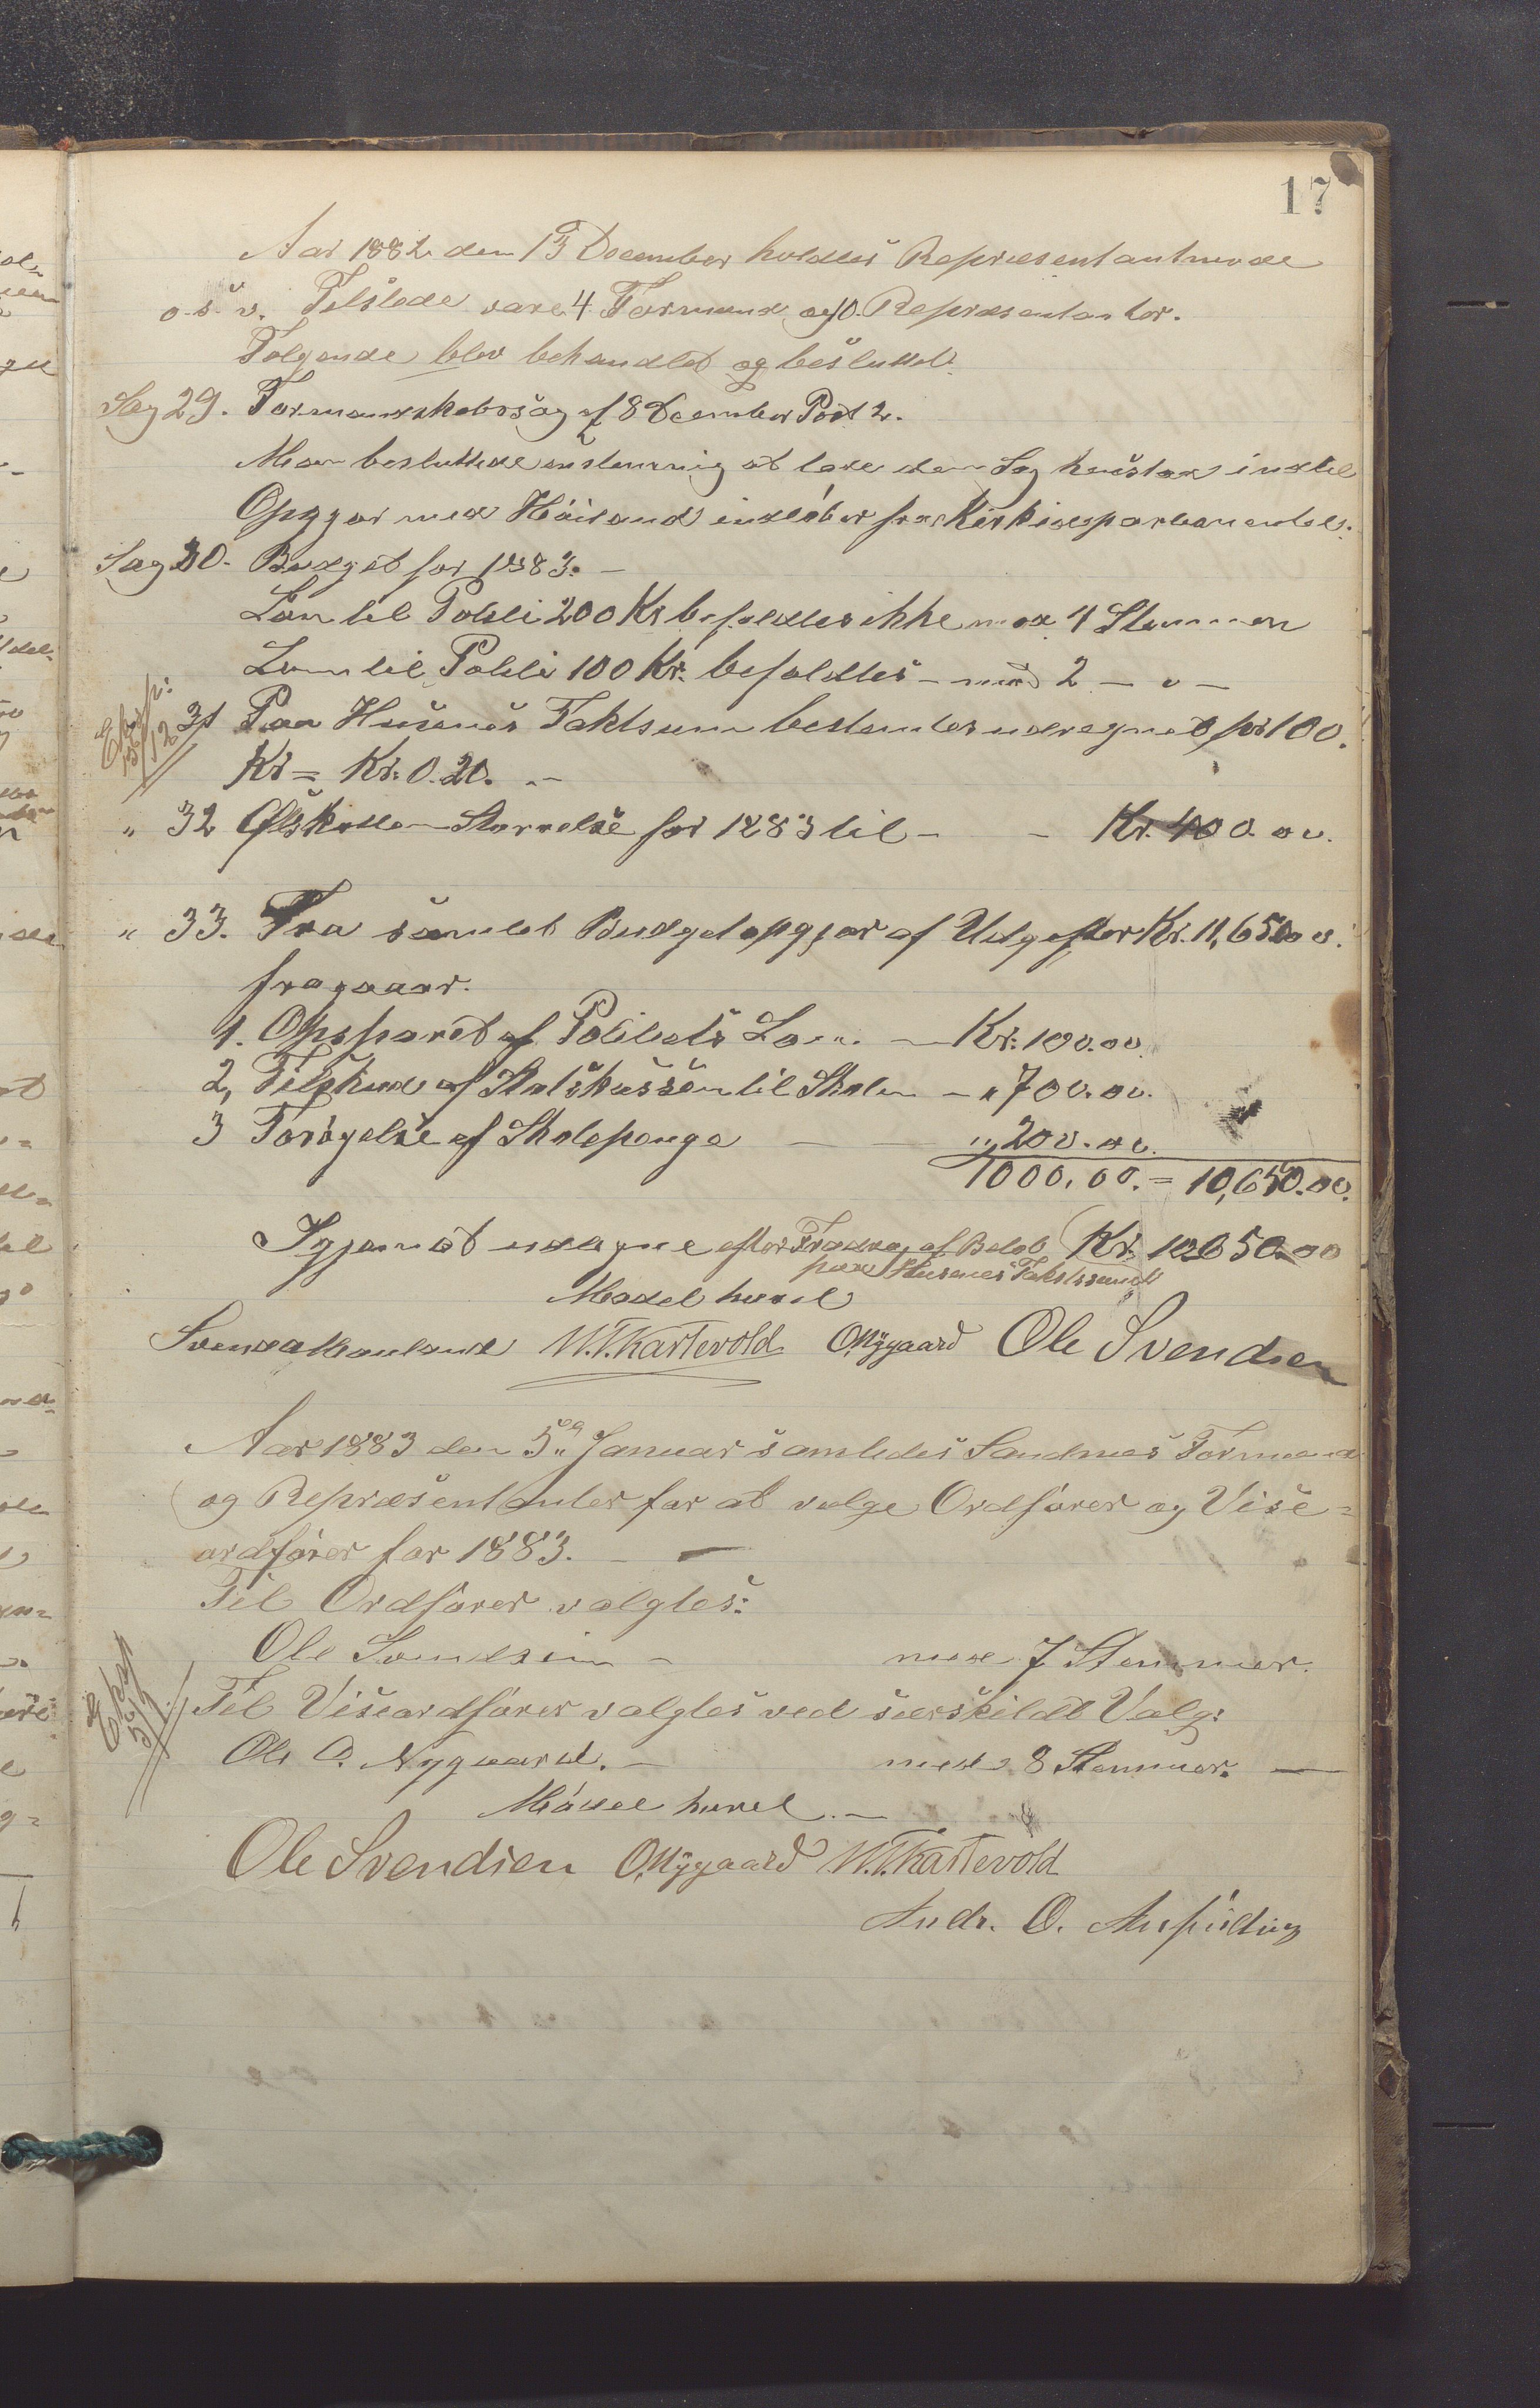 17
Aar 1882 den 13 December holdtes Repræsentantmøde
o. s. v. Tilstede vare 4 Formænd og 10. Repræsentanter.
Følgende blev behandlet og besluttet.
Sag 29. Formandskabssag af 8 December Post 2.
Man besluttede enstemmig at lade den Sag henstaa indtil
Opgjør med Höiland indløber fra
Sag 30. Budget for 1883. —
Løn til Politi 200 Kr befaldtes ikke mod 4 Stemmer
Løn til Politi 100 Kr. befaldtes - med 2 — " —
Exp.
13/12
31 Paa Husenes Taktsum bestemtes udregnet pr 100.
Kr = Kr. 0.20. —
" 32 Ølskatten Størrelse for 1883 til — — Kr. 400.00.
" 33. Fra samlet Budgetopgjør af Udgifter Kr. 11,650.00.
fragaaar.
1. Opsparet af Politiets Løn — Kr. 100.00.
2, Tilskud af Statskassen til Skolen — " 700.00.
3 Forøgelse af Skolepenge — — " 200.00.
1000.00. = 10,650.00.
Igjen at udligne efter Fradrag af Beløb Kr. 10650.00
paa Husenes Takstsum
Mødet hævet
Svend Aauland M. T. Kartevold O. Nygaard Ole Svendsen
Aar 1883 den 5te Januar samledes Sandnes Formænd
og Repræsentanter for at vælge Ordfører og Vise=
ordfører for 1883. —
Til Ordfører valgtes:
Ole Svendsen — med 7 Stemmer.
Exp
5/1
Til Viseordfører valgtes ved særskildt Valg:
Ole O. Nygaard. — med 8 Stemmer. —
Mödet hævet. —
Ole Svendsen O. Nygaard M. T. Kartevold
Andr. O.